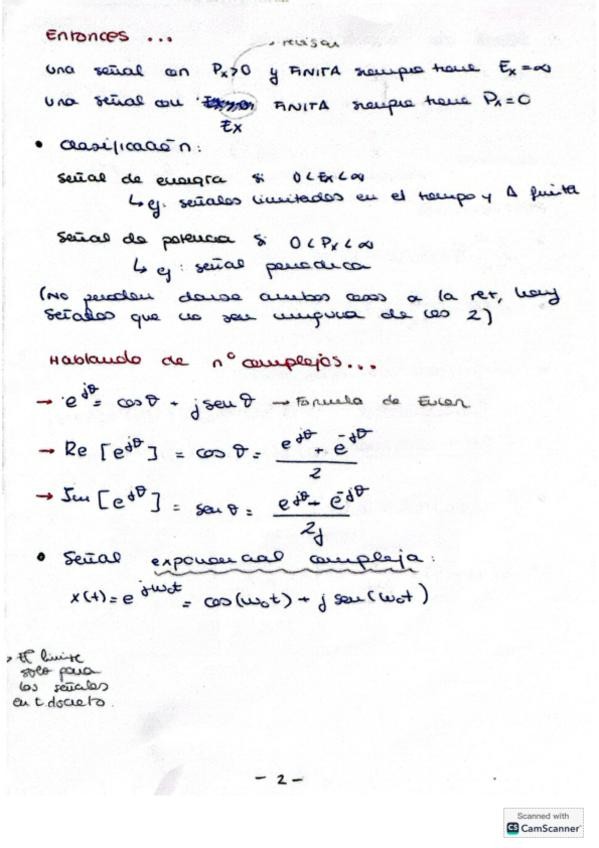 Entonces ...
→ revisar
una señal con Px>0 y FINITA siempre tiene Ex=∞
una señal con FINITA siempre tiene Px=0
Ex
• Clasificación:
Señal de energía si 0<Ex<∞
↳ ej. señales limitadas en el tiempo y A finita
Señal de potencia si 0<Px<∞
↳ ej: señal periodica
(No pueden darse ambos casos a la vez, hay
señales que no son ninguna de las 2)
Hablando de nº complejos...
→ e^jθ = cos θ + j sen θ → Fórmula de Euler
→ Re [e^jθ] = cos θ = (e^jθ + e^-jθ)/2
→ Im [e^jθ] = sen θ = (e^jθ - e^-jθ)/2j
• Señal exponencial compleja:
x(t) = e^jω₀t = cos(ω₀t) + j sen(ω₀t)
→ El límite
solo para
las señales
en t. discreto.
- 2 -
Scanned with
CS CamScanner